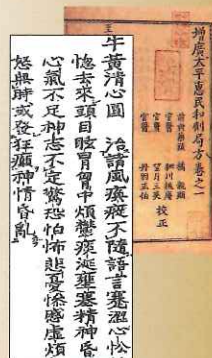 增廣太平惠民和劑局方卷之一
校正
牛黄清心圓 治諸風瘓瘲不隨語言蹇澀心忪
惚去來頭目眩冒胷中煩鬱痰涎壅塞精神昏
心氣不足神志不定驚恐怕怖悲憂慘慼虛煩
怒無時或發狂癲神情昏亂